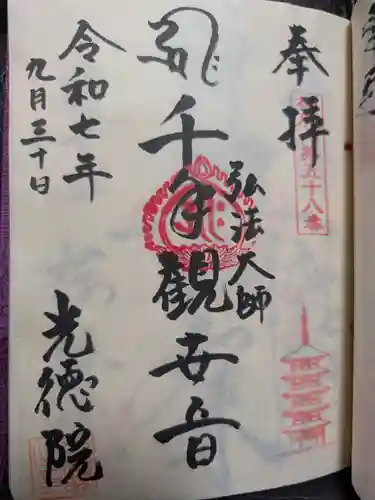 奉拝
五十八番
千手観世音
弘法大師
令和七年
九月三十日
光徳院